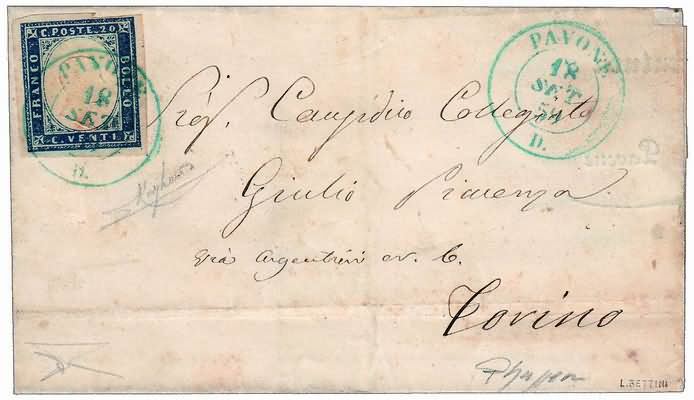 C. POSTE. 20
FRANCO
BOLLO
C. VENTI.
PAVONE
18
SET
D.
PAVONE
18
SET
D.
Sig. Causidico Collegiato
Giulio Piacenza
Via Argentieri
Torino
L. BETTINI